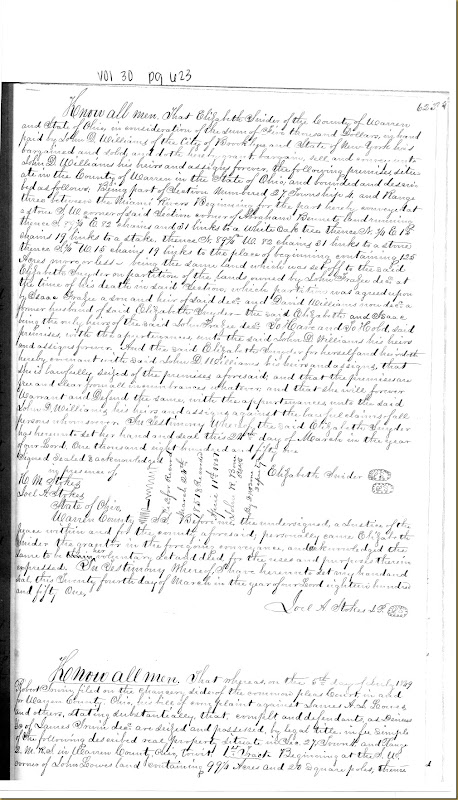 vol 30 pg 623
623
Know all men, That Elizabeth Snider of the County of Warren
and State of Ohio, in consideration of the sum of Five thousand Dollars, in hand
paid by John D. Williams of the City of Brooklyn and State of New York has
bargained and sold, and doth hereby grant, bargain, sell, and convey unto
John D. Williams his heirs and assigns forever, the following premises situ-
ate in the County of Warren in the State of Ohio, and bounded and descri-
bed as follows. Being part of Section Numbered 27 Township 4, and Range
three between the Miami Rivers Beginning for the part hereby conveyed at
a stone S. W. corner of said Section corner of Abraham Bennett, land running
thence S. 82 chains and 31 links to a White Oak tree thence N. E 15
chains 19 links to a stake, thence N. W. 82 chains 31 links to a stone
thence W. 15 chains 19 links to the place of beginning containing 125
Acres more or less - being the same land which was set off to the said
Elizabeth Snyder on partition of the lands owned by John Frazee decd at
the time of his death in said Section, which partition was agreed upon
by Isaac Frazee a son and heir of said decd and David Williams now decd a
former husband of said Elizabeth Snyder - the said Elizabeth and Isaac
being the only heirs of the said John Frazee decd To Have and To Hold said
premises, with the appurtenances, unto the said John D. Williams his heirs
and assigns forever. And the said Elizabeth Snyder for herself and heirs doth
hereby covenant with said John D. Williams, his heirs and assigns, that
she is lawfully seized of the premises aforesaid, and that the premises are
free and clear from all incumbrances whatever, and that she will forever
Warrant and Defend the same, with the appurtenances unto the said
John D. Williams, his heirs and assigns against the lawful claims of all
persons whomsoever. In Testimony Whereof, the said Elizabeth Snyder
has hereunto set her hand and seal this 24th day of March in the year
of our Lord One thousand eight hundred and fifty one
Signed Sealed & acknowledged
in presence of
Elizabeth Snider
H M Stokes
Joel A Stokes
March 28th
1851 &
June 11th 1851
State of Ohio,
Warren County SS. Before me the undersigned, a Justice of the
peace within and for the county aforesaid, personally came Elizabeth
Snider the grantor in the foregoing conveyance, and acknowledged the
same to be her voluntary act and deed for the uses and purposes therein
expressed. In Testimony Whereof, I have hereunto set my hand and
seal this twenty fourth day of March in the year of our Lord eighteen hundred
and fifty One,
Joel A Stokes J.P.
Know all men, That whereas, on the 5th day of July 1849
Robert Irwin filed on the chancery side of the common pleas Court, in and
for Warren County Ohio, his bill of complaint against James
and others, stating substantially, that complt and defendants, as
of James Irwin decd are seized and possessed, by legal title, in fee simple
of the following described real property situate in Sec. 27, Town 4 and Range
3. M. R. al in Warren County Ohio, towit 1st Tract Beginning at the S. W.
corner of John Lowes land containing 99 1/4 Acres and 26 square poles, thence